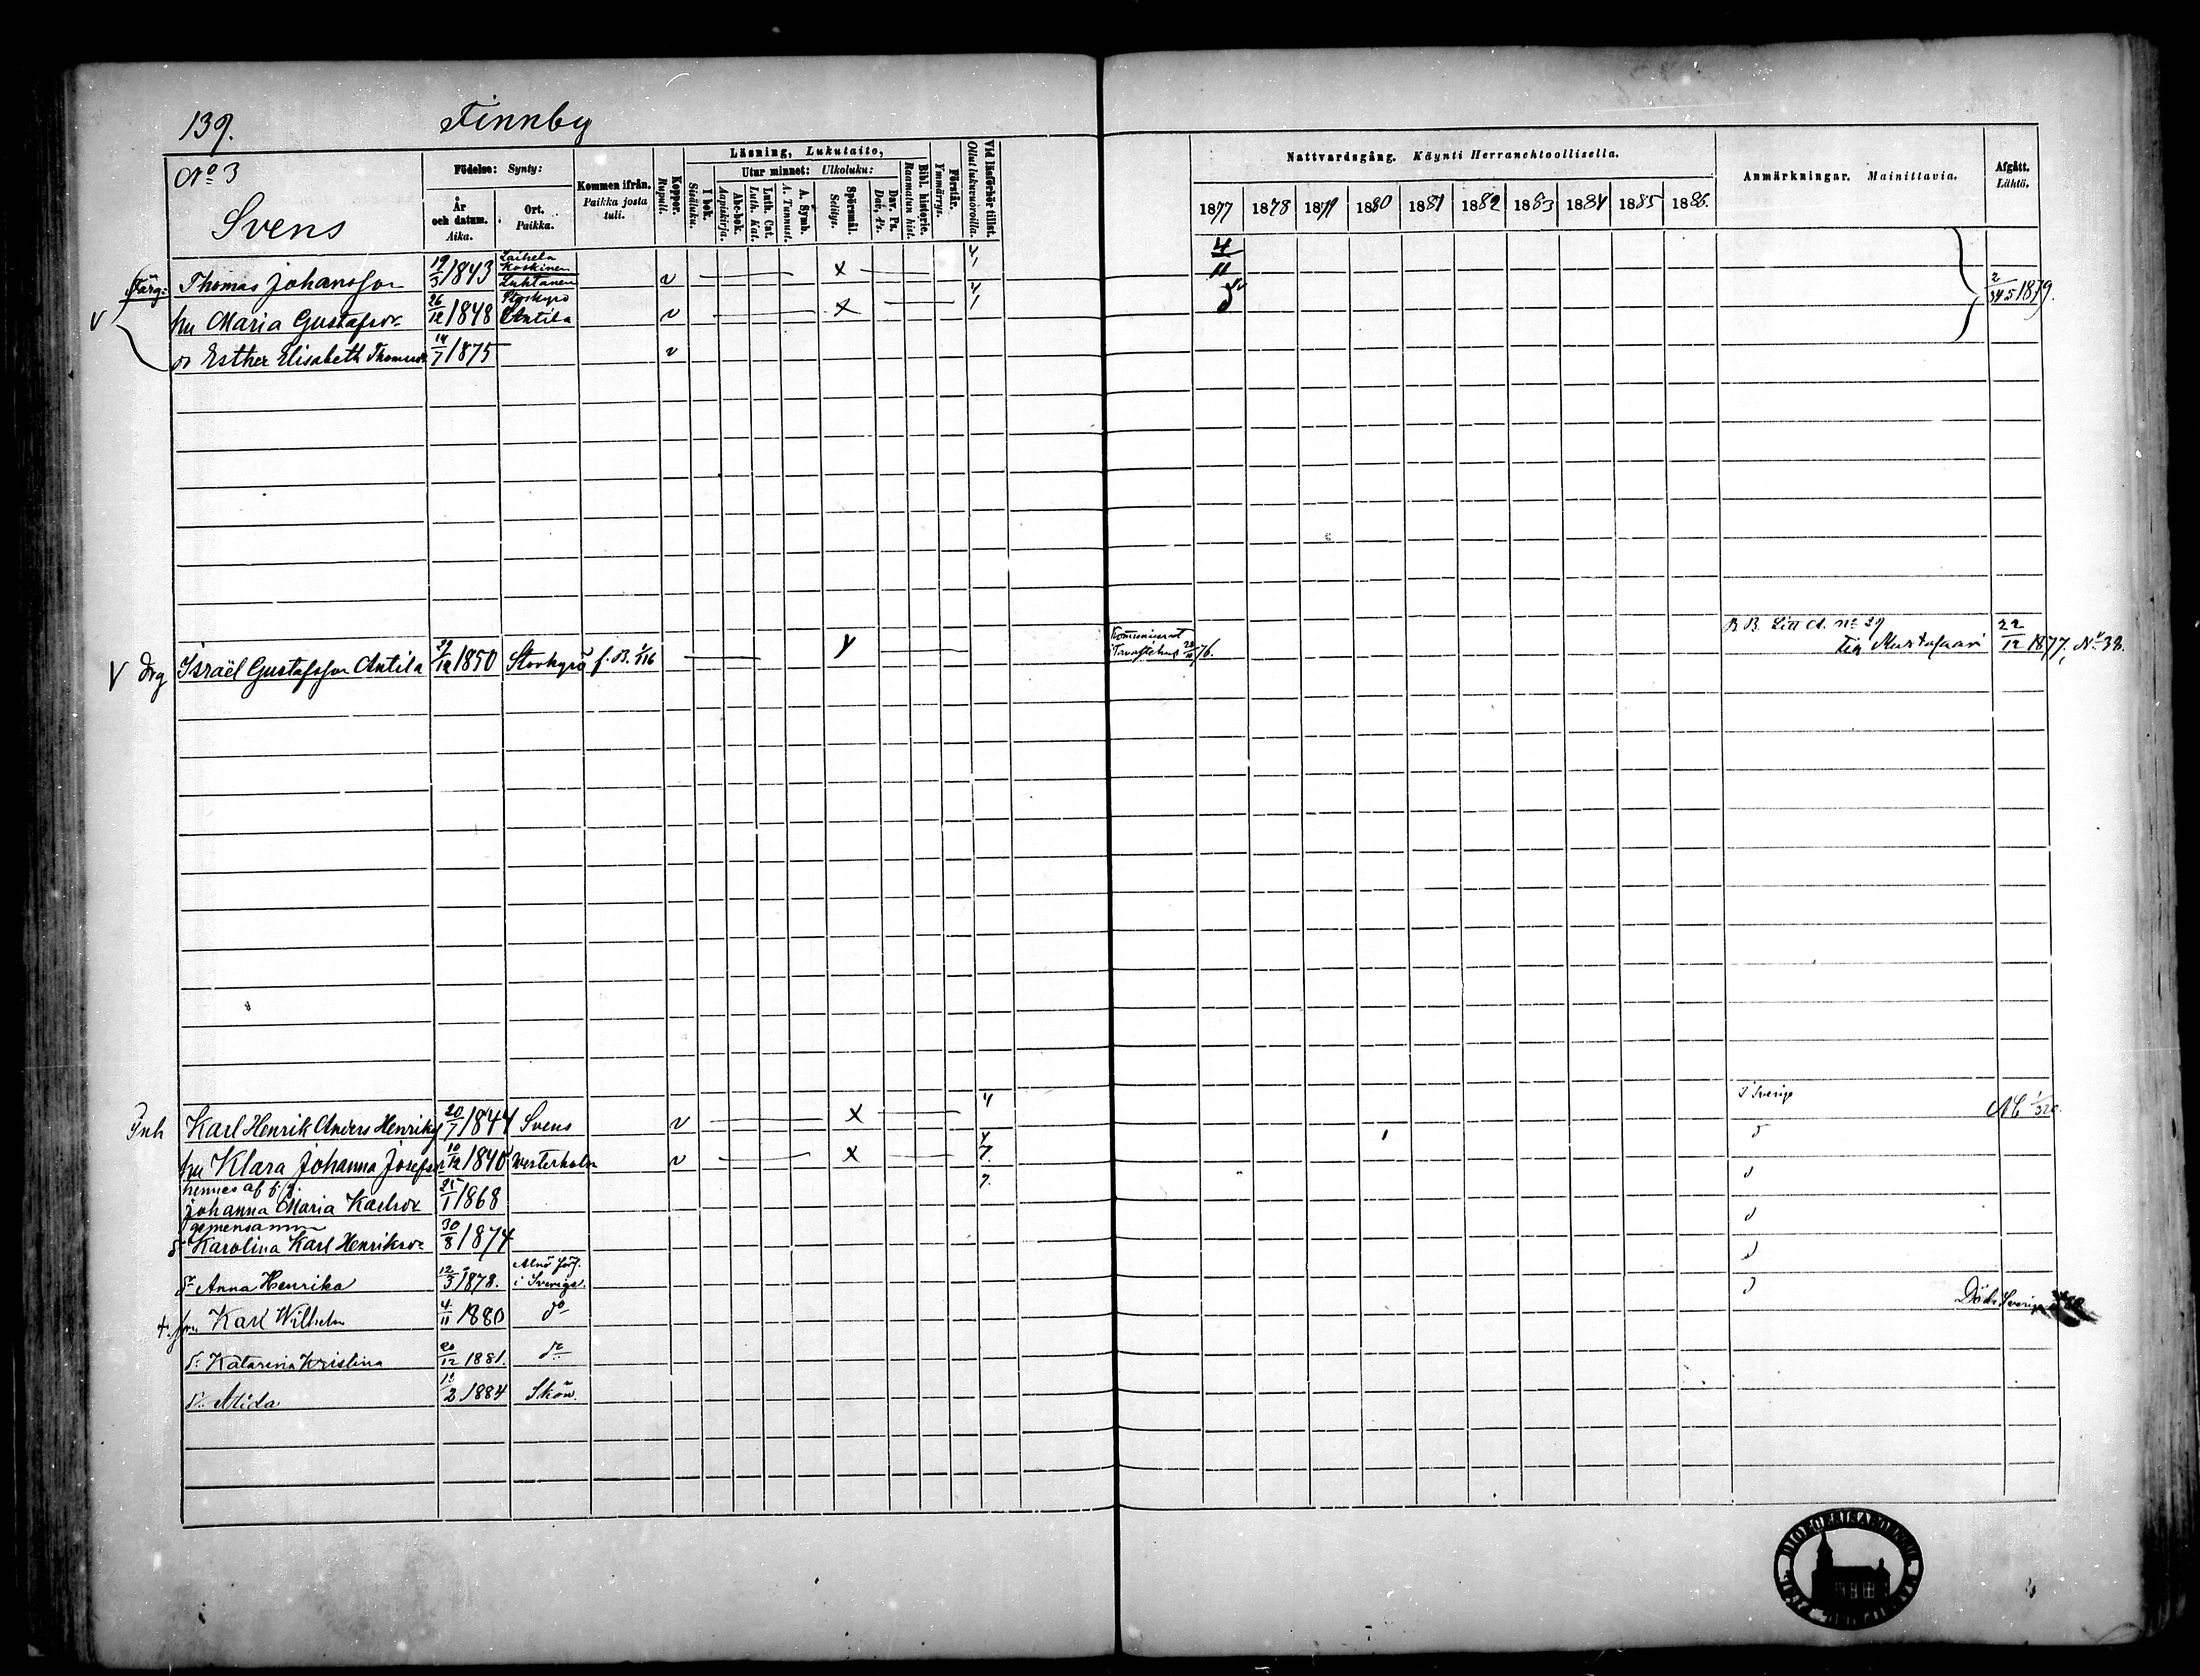 139. Finnby
No 3
Svens
Födelse: Synty:
År och datum. Aika.
Ort. Paikka.
Kommen ifrån. Paikka josta tuli.
Koppor. Rupuli.
Läsning, Lukutaito,
I bok. Sisäluku.
Utur minnet: Ulkoluku:
Abc-bok. Aapiskirja.
Luth. Cat. Luth. Kat.
A. Symb. A. Tunnust.
Spörsmål. Selitys.
Dav. Ps. Dav. Ps.
Bibl. historie. Raamatun hist.
Förstår. Ymmärrys.
Vid läsförhör tillst. Ollut lukuvuoroilla.
Nattvardsgång. Käynti Herranehtoollisella.
1877 1878 1879 1880 1881 1882 1883 1884 1885 1886.
Anmärkningar. Mainittavia.
Afgått. Lähtö.
Färg: Thomas Johansson 19/3 1843 Laihela Koskinen Luhtanen v x 4/11
hu Maria Gustafsdr 26/12 1848 Storkyro Antila v x
dr Esther Elisabeth Thomasdr 14/7 1875 v
2/345 1879.
v drg Israël Gustafsson Antila 1850 Storkyrö f. B. 1/116 Kommunicerat Tavastehus 76.
B B. Litt A. No 39
22/12 1877, No 38.
Inh Karl Henrik Anders Henriks 20/7 1844 Svens v x 4 I Sverige
hu Klara Johanna Josefsdr 10/12 1840 Westerholm v x 4 7. 1
hennes af f. g.
Johanna Maria Karlsdr 25/1 1868 7.
gemensamma
d Karolina Karl Henriksdr 30/8 1874
dr Anna Henrika 12/3 1878. Alnö förs. i Sverige.
+ son Karl Wilhelm 4/11 1880 do Död i Sverige
d: Katarina Kristina 20/12 1881. do
d: Alida 2 1884 Skön